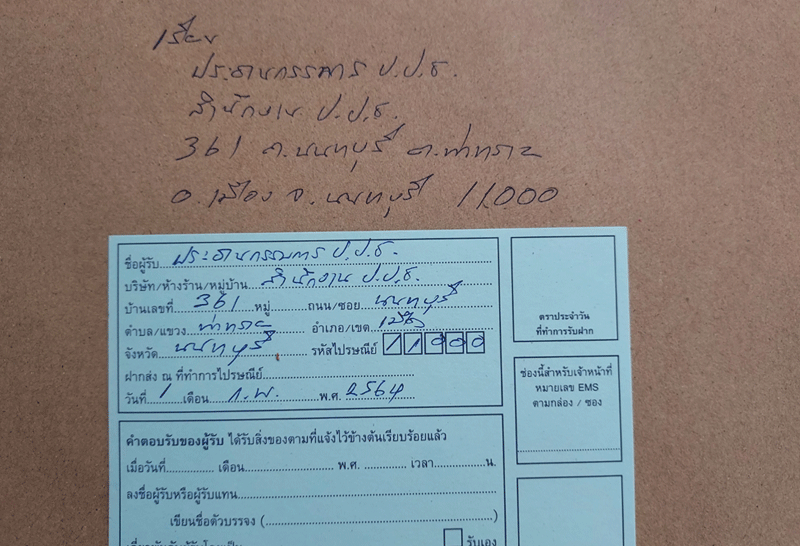 เรียน
ประธานกรรมการ ป.ป.ช.
สำนักงาน ป.ป.ช.
361 ถ.นนทบุรี ต.ท่าทราย
อ.เมือง จ.นนทบุรี 11000
ชื่อผู้รับ ประธานกรรมการ ป.ป.ช.
บริษัท/ห้างร้าน/หมู่บ้าน สำนักงาน ป.ป.ช.
บ้านเลขที่ 361 หมู่ ถนน/ซอย นนทบุรี
ตำบล/แขวง ท่าทราย อำเภอ/เขต เมือง
จังหวัด นนทบุรี รหัสไปรษณีย์ 11000
ฝากส่ง ณ ที่ทำการไปรษณีย์
วันที่ 1 เดือน ก.พ. พ.ศ. 2564
ตราประจำวัน
ที่ทำการรับฝาก
ช่องนี้สำหรับเจ้าหน้าที่
หมายเลข EMS
ตามกล่อง / ซอง
คำตอบรับของผู้รับ ได้รับสิ่งของตามที่แจ้งไว้ข้างต้นเรียบร้อยแล้ว
เมื่อวันที่ เดือน พ.ศ. เวลา น.
ลงชื่อผู้รับหรือผู้รับแทน
เขียนชื่อตัวบรรจง ( )
รับเอง